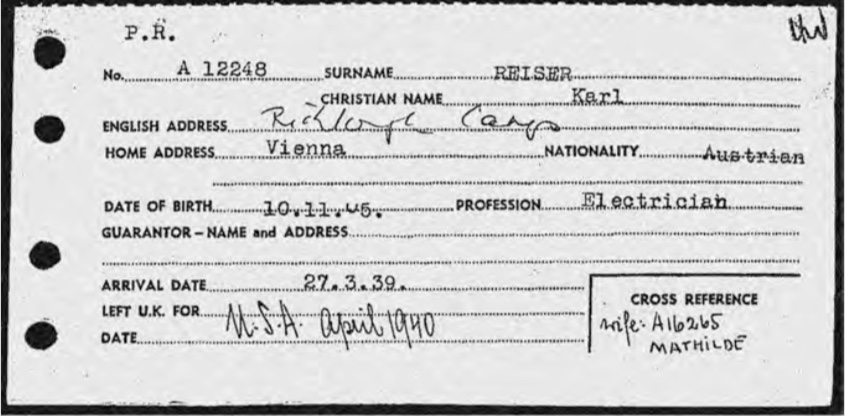 P.R.
No. A 12248 SURNAME REISER
CHRISTIAN NAME Karl
ENGLISH ADDRESS Richborough Camp
HOME ADDRESS Vienna NATIONALITY Austrian
DATE OF BIRTH 10.11. PROFESSION Electrician
GUARANTOR – NAME and ADDRESS
ARRIVAL DATE 27.3.39.
LEFT U.K. FOR U.S.A. April 1940
DATE
CROSS REFERENCE
wife: A16265
MATHILDE